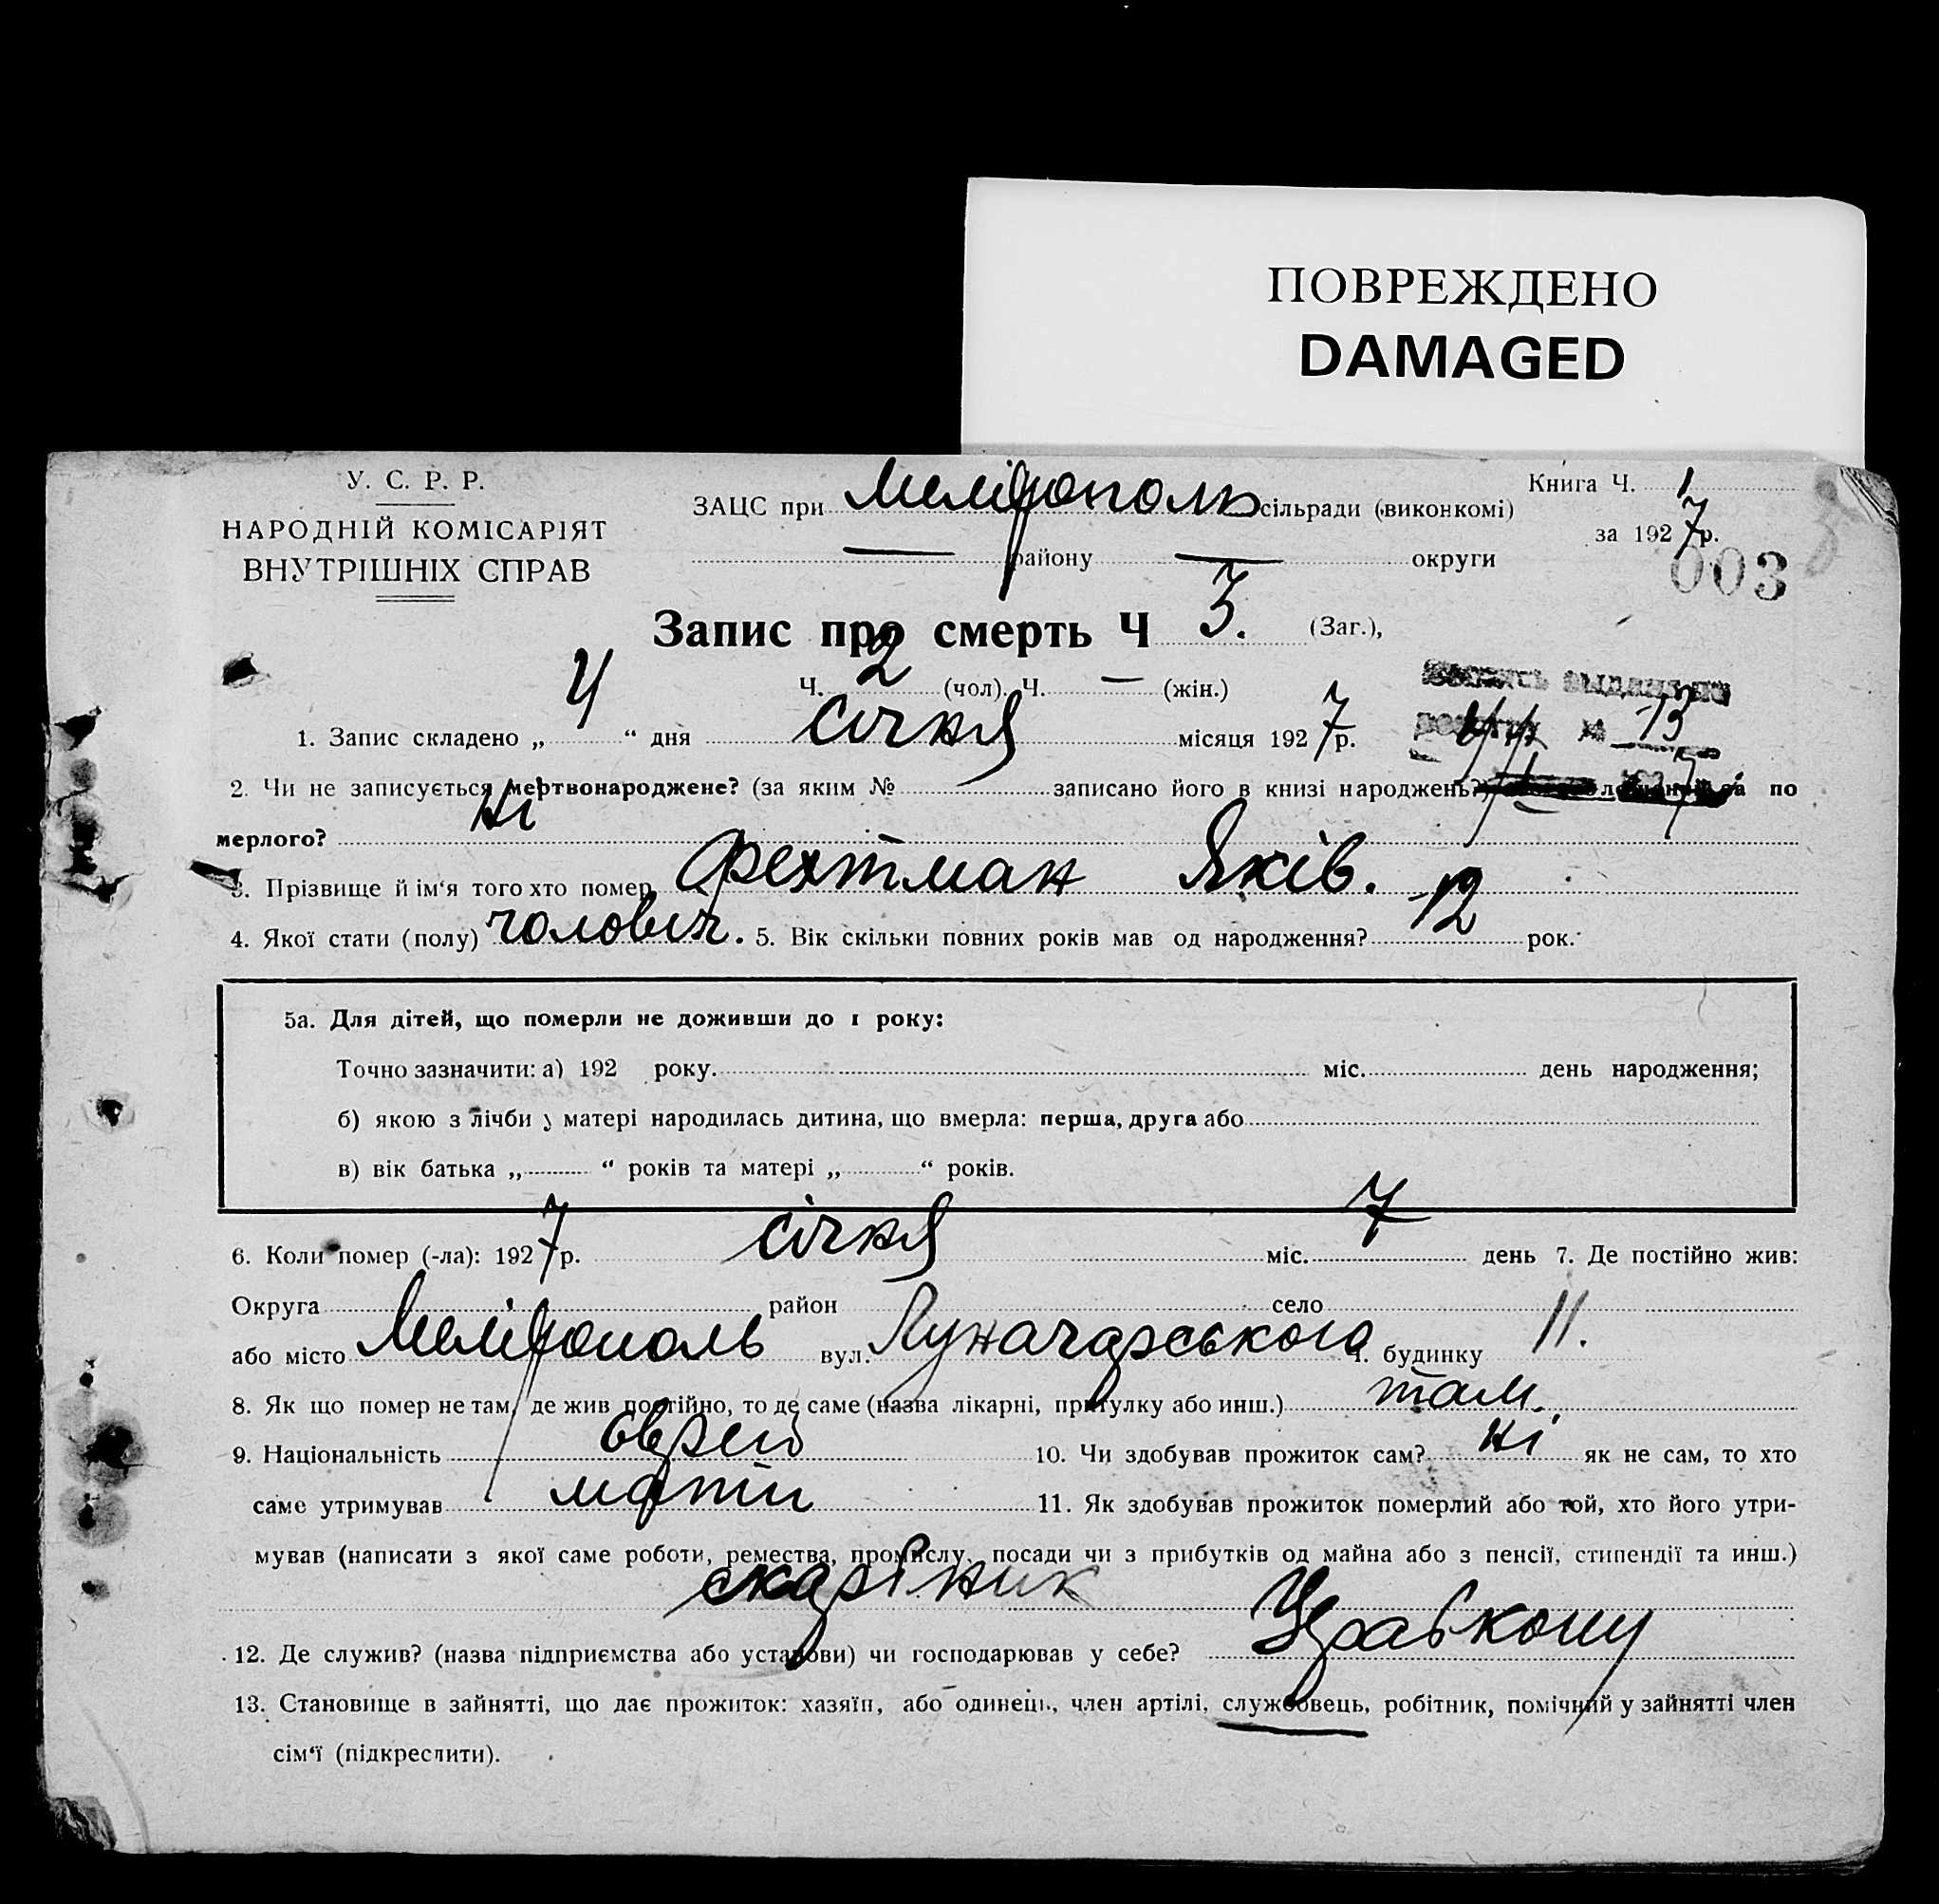 ПОВРЕЖДЕНО
DAMAGED
У. С. Р. Р.
НАРОДНІЙ КОМІСАРІЯТ
ВНУТРІШНІХ СПРАВ
Книга Ч. 1
за 1927 р.
003
ЗАЦС при Мелітополь сільради (виконкомі)
— району — округи
Запис про смерть Ч 3. (Заг.),
Ч. 2 (чол). Ч. — (жін.)
1. Запис складено „ 4 “ дня січня місяця 1927 р.
№ 13
2. Чи не записується мертвонароджене? (за яким № записано його в книзі народжень?) по
мерлого? Ні
3. Прізвище й ім‘я того хто помер Фехтман Яків.
4. Якої стати (полу) чоловіч. 5. Вік скільки повних років мав од народження? 12 рок.
5а. Для дітей, що померли не доживши до 1 року:
Точно зазначити: а) 192 року. міс. день народження;
б) якою з лічби у матері народилась дитина, що вмерла: перша, друга або
в) вік батька „ “ років та матері „ “ років.
6. Коли помер (-ла): 1927 р. січня міс. 7 день 7. Де постійно жив:
Округа район село
або місто Мелітополь вул. Луначарського ч. будинку 11.
8. Як що помер не там, де жив постійно, то де саме (назва лікарні, притулку або инш.) там.
9. Національність єврей 10. Чи здобував прожиток сам? ні як не сам, то хто
саме утримував мати 11. Як здобував прожиток померлий або той, хто його утри-
мував (написати з якої саме роботи, ремества, промислу, посади чи з прибутків од майна або з пенсії, стипендії та инш.)
скарбник
12. Де служив? (назва підприємства або установи) чи господарював у себе?
13. Становище в зайнятті, що дає прожиток: хазяїн, або одинець, член артілі, службовець, робітник, помічний у зайнятті член
сім‘ї (підкреслити).